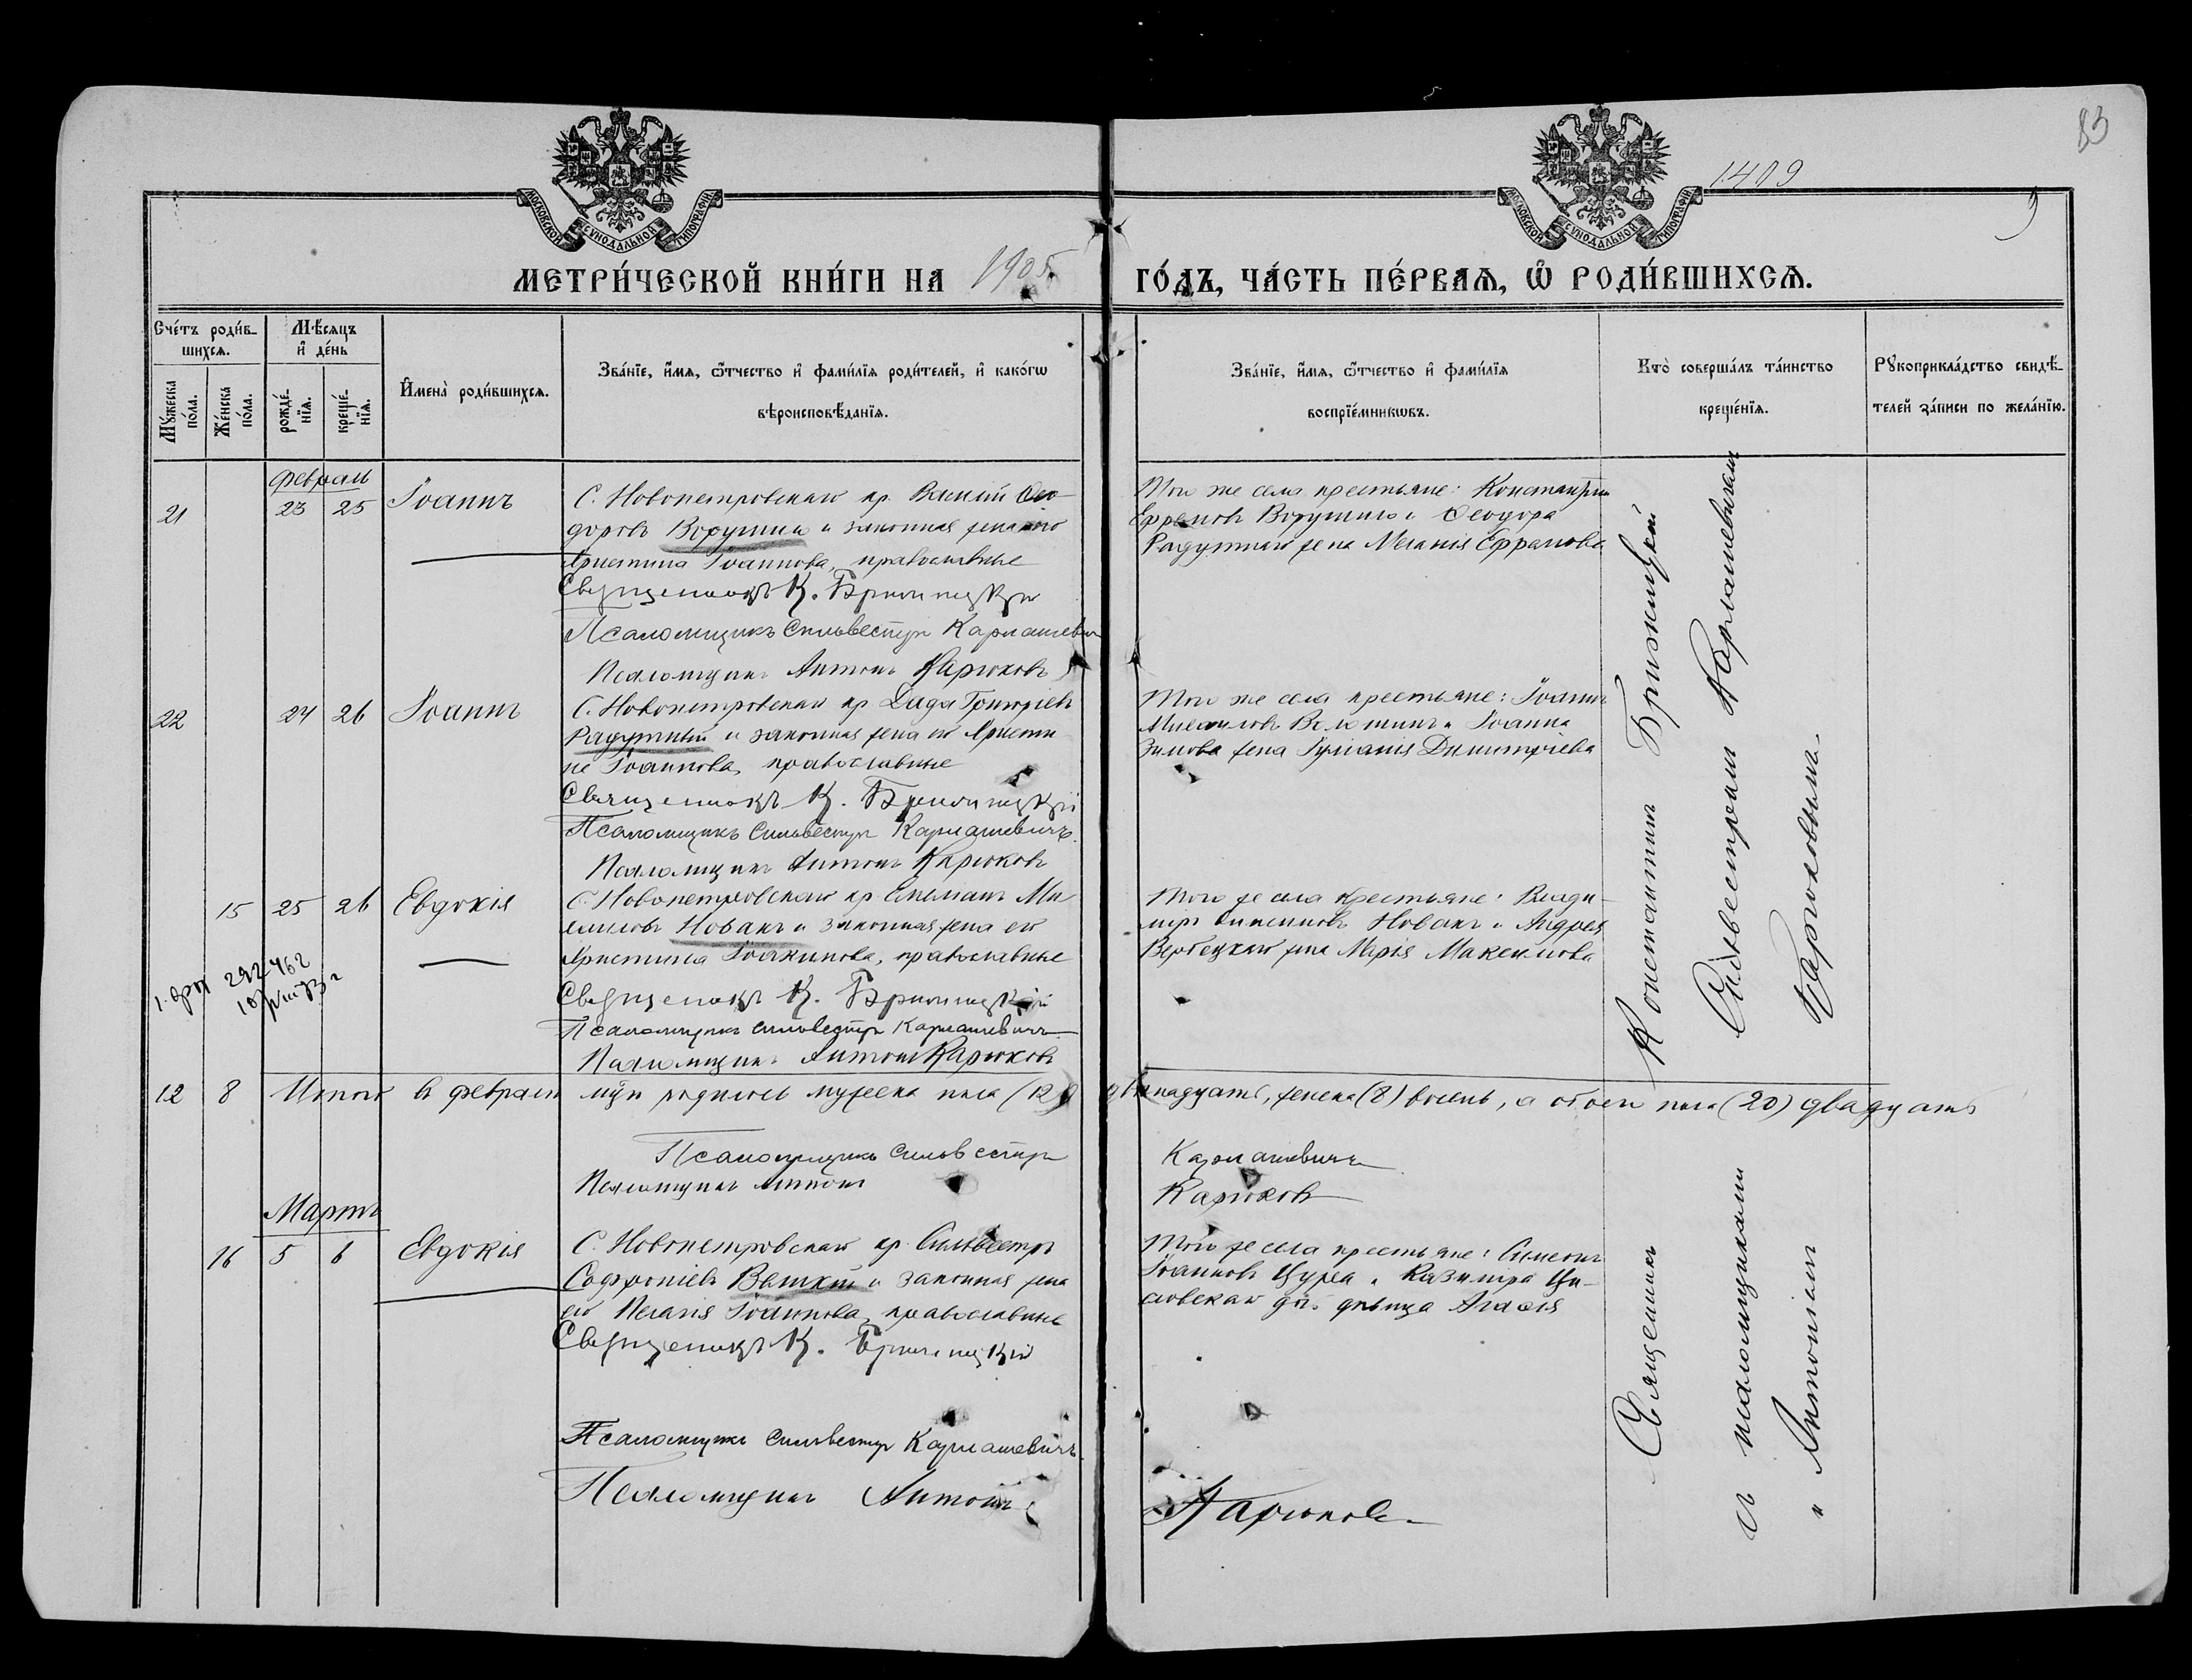 83
1409
МОСКОВСКОЙ СѴНОДАЛЬНОЙ ТИПОГРАФІИ
МОСКОВСКОЙ СѴНОДАЛЬНОЙ ТИПОГРАФІИ
МЕТРИ́ЧЕСКОЙ КНИ́ГИ НА 1905 ГО́ДЪ, ЧА́СТЬ ПЕ́РВАѦ, Ѡ҆ РОДИ́ВШИХСѦ.
Сче́тъ роди́в-
шихсѧ.
Мꙋ́жеска по́ла.
Же́нска по́ла.
Мѣ́сѧцъ
и҆ де́нь
рожде́-
нїѧ.
креще́-
нїѧ.
И҆мена̀ роди́вшихсѧ.
Зва́нїе, и҆́мѧ, ѻ҆́тчество и҆ фамѝлїѧ роди́телей, и҆ како́гѡ
вѣроисповѣ́данїѧ.
Зва́нїе, и҆́мѧ, ѻ҆́тчество и҆ фамѝлїѧ
воспрїе́мникѡвъ.
Кто̀ соверша́лъ та́инство
креще́нїѧ.
Рꙋкоприкла́дство свидѣ́-
телей за́писи по жела́нїю.
Февраль
21 23 25 Іоаннъ
С. Новопетровскаго кр. Василій Ѳео-
доровъ Ворушило и законная жена его
Христина Іоаннова, православные
Священникъ К.
Псаломщикъ Сильвестръ Кармашевичъ
Псаломщикъ Антонъ Карюковъ
Того же села крестьяне: Константинъ
Ефремовъ Ворушило и Ѳеодора
Радужнаго жена Меланія Ефремова
22 24 26 Іоаннъ
С. Новопетровскаго кр. Григоріевъ
Радужный и законная жена его Христи-
на Іоаннова, православные
Священникъ К.
Псаломщикъ Сильвестръ Кармашевичъ
Псаломщикъ Антонъ Карюковъ
Того же села крестьяне: Іоаннъ
Михаиловъ Волошинъ и Іоанна
Зимова жена Іуліанія Димитріева
15 25 26 Евдокія
С. Новопетровскаго кр. Ми-
хаиловъ Новакъ и законная жена его
Христина Іоакимова, православные
Священникъ К.
Псаломщикъ Сильвестръ Кармашевичъ
Псаломщикъ Антонъ Карюковъ
Того же села крестьяне: Влади-
міръ Новакъ и Андрея
Вербецкаго жена Марія Максимова
12 8 Итого въ февралѣ м-цѣ родилось мужеска пола (12) двѣнадцать, женска (8) восемь, а обоего пола (20) двадцать
Псаломщикъ Сильвестръ Кармашевичъ
Псаломщикъ Антонъ Карюковъ
Мартъ
16 5 6 Евдокія
С. Новопетровскаго кр. Сильвестръ
Софроніевъ и законная жена
его Пелагія Іоаннова, православные
Священникъ К.
Псаломщикъ Сильвестръ Кармашевичъ
Псаломщикъ Антонъ Карюковъ
Того же села крестьяне: Симеонъ
Іоанновъ и Казиміра
дочь дѣвица Агаѳія
Священникъ Константинъ
и псаломщиками Сильвестромъ Кармашевичемъ
и Антоніемъ Карюковымъ.